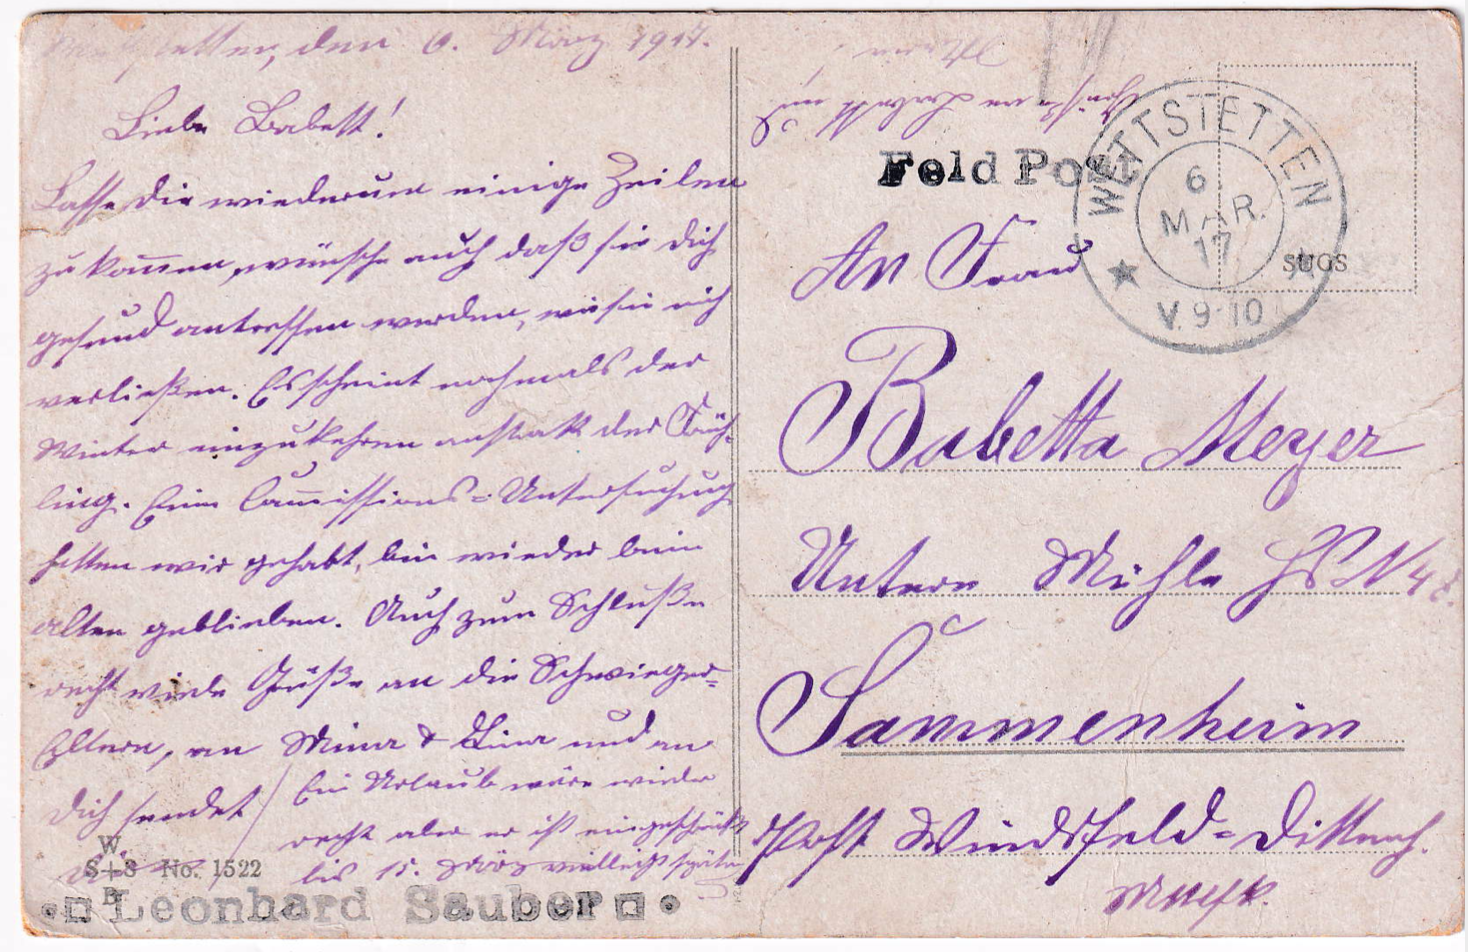 Wettstetten, den 6. März 1917.
Liebe Babett!
Lasse dir wiederum einige Zeilen
zu kom̅en, wünsche auch daß sie dich
gesund antreffen werden, wie sie mich
verließen. Es scheint nochmals der
Winter einzukehren anstatt der Früh-
ling. Eine Com̅issions-Untersuchung
hatten wir gehabt, bin wieder beim
alten geblieben. Auch zum Schluße
recht viele Grüße an die Schwieger-
Eltern, an Mina & Lina und an
Dich sendet
Ein Urlaub wäre wieder
recht aber er ist eingeschränkt
bis 15. März vielleicht später
W.
S+S No. 1522
B
Leonhard Sauber
Feld Post
WETTSTETTEN
6
MAR.
17
V. 9-10
SUGS
An Frau
Babetta Meyer
Untere Mühle Hs N 48.
Sammenheim
Post Windsfeld-Dittenh.